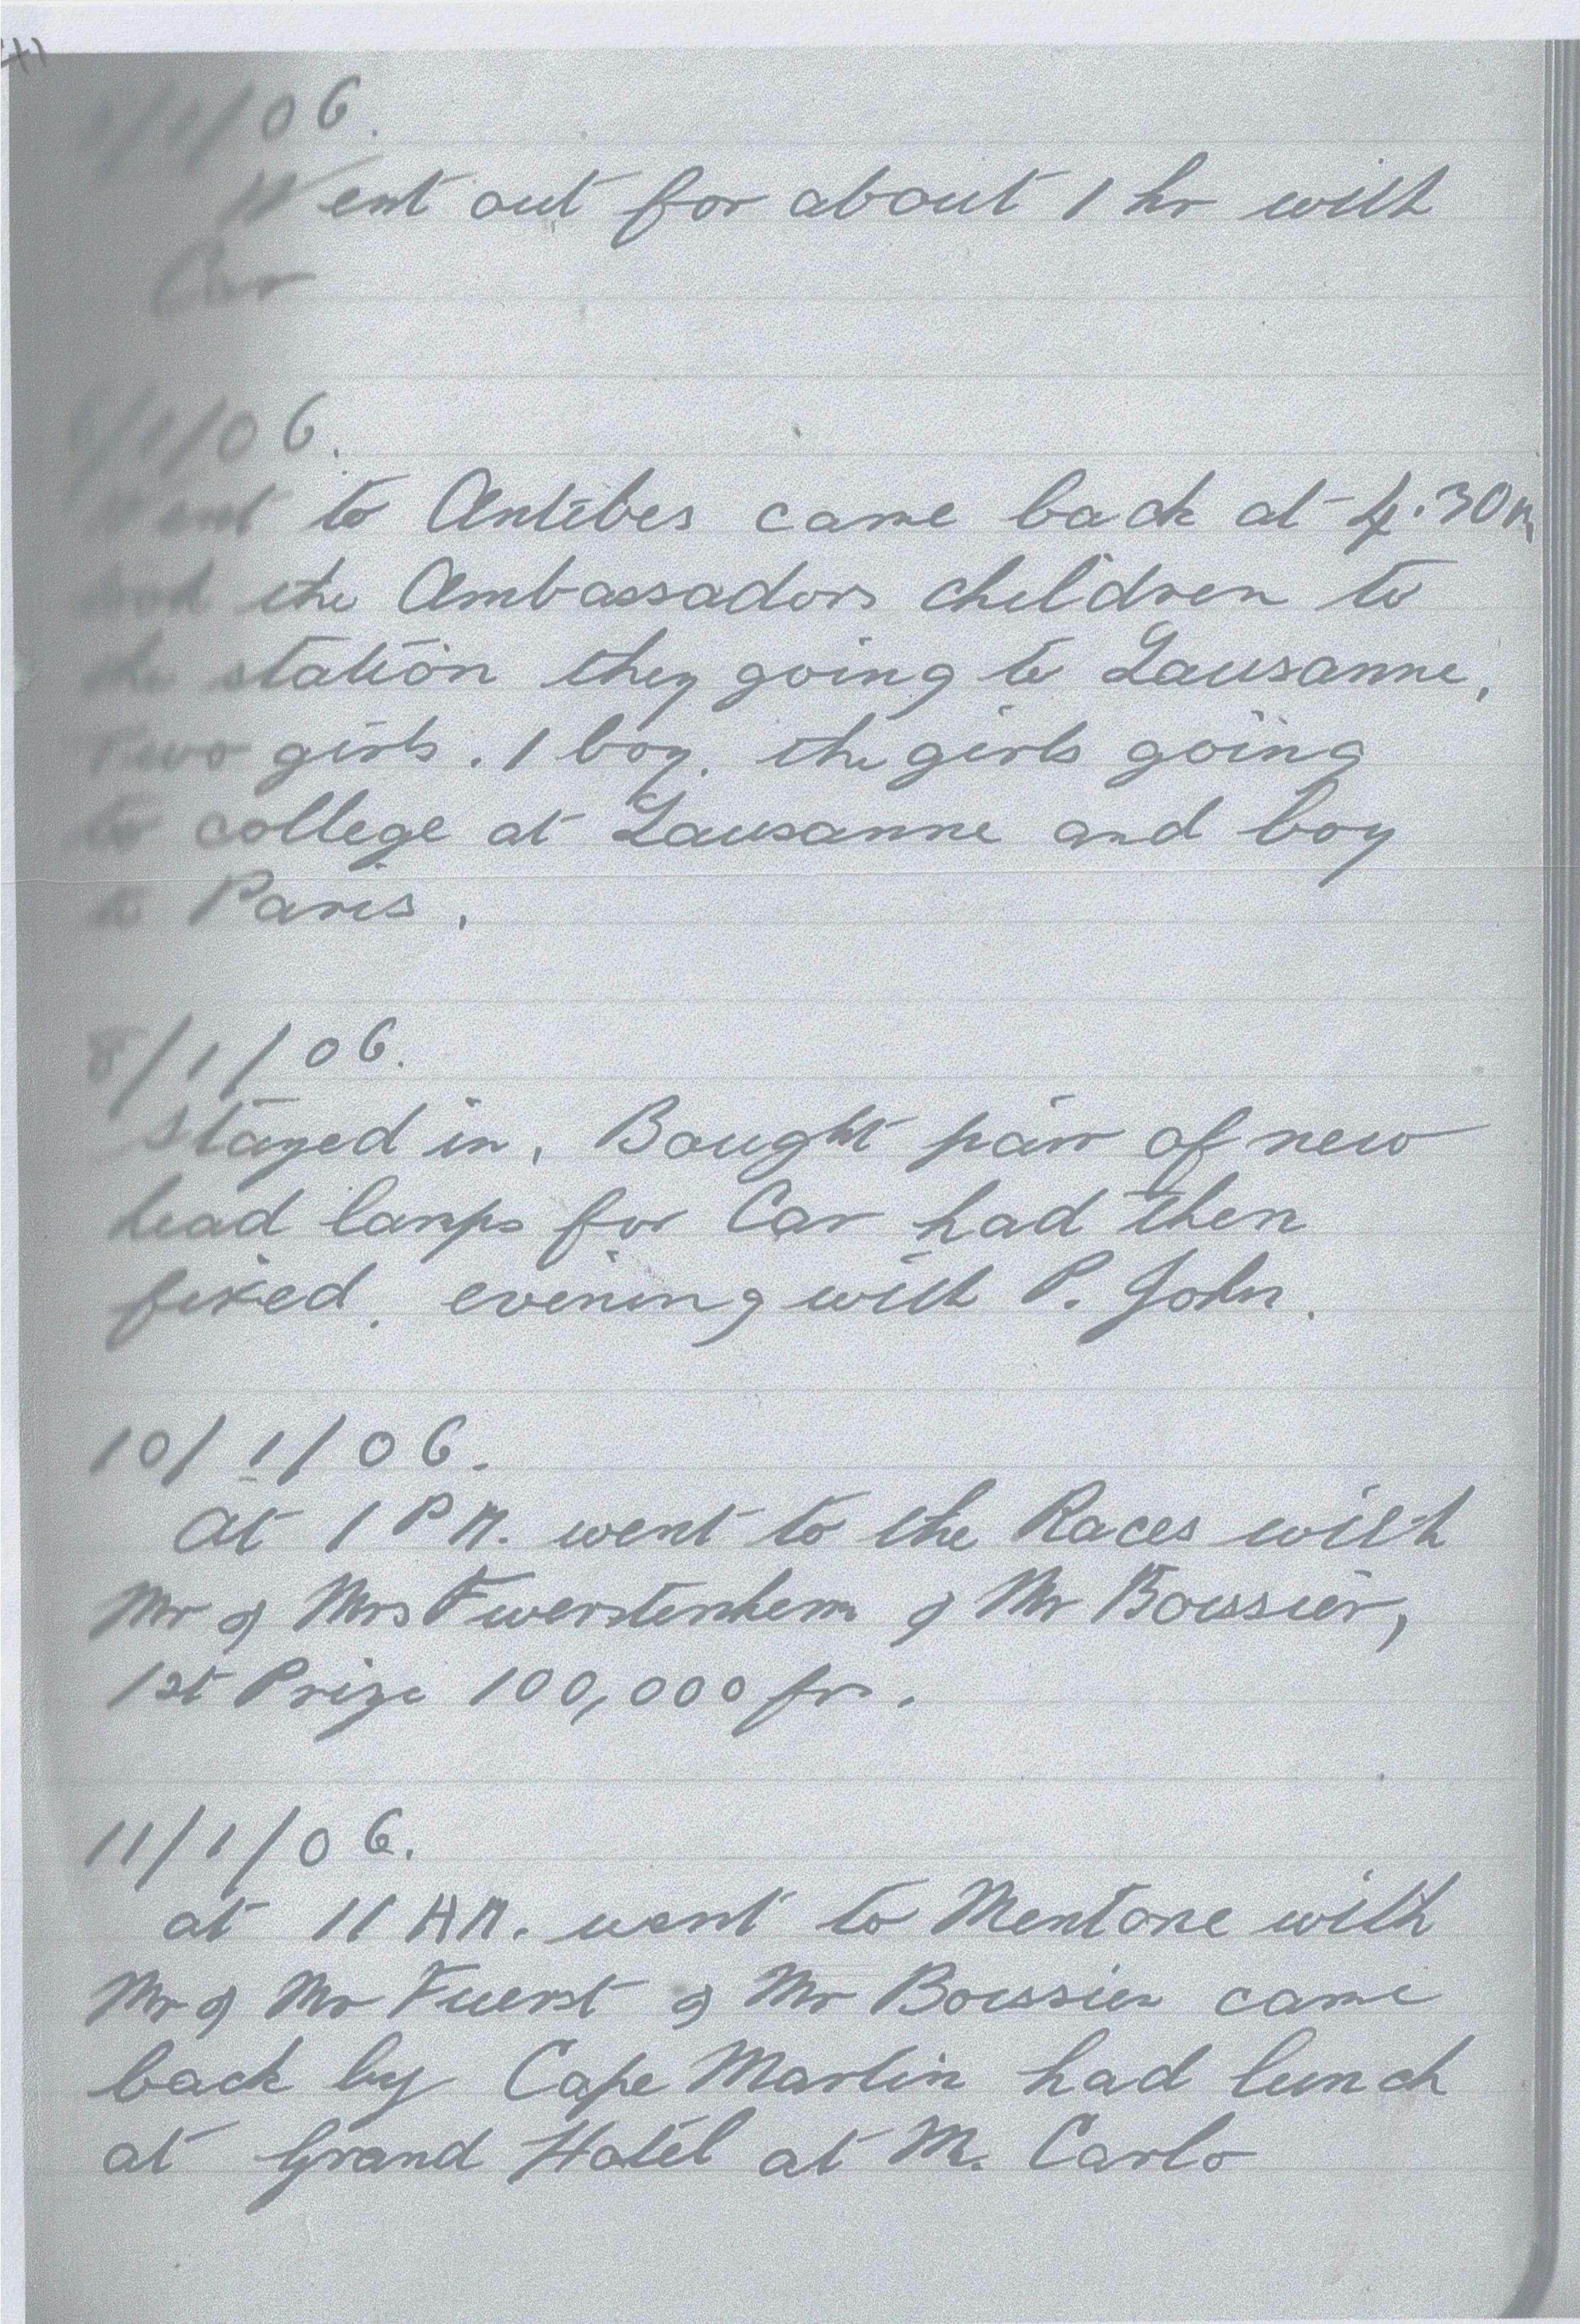 /1/06.
Went out for about 1 hr with
Car
/1/06.
Went to Antibes came back at 4.30
the Ambassadors children to
the station they going to Lausanne,
Two girls. 1 boy. the girls going
to college at Lausanne and boy
to Paris.
8/1/06.
Stayed in. Bought pair of new
head lamps for Car had then
fixed. evening with P. John.
10/1/06.
At 1 PM. went to the Races with
Mr & Mrs & Mr Boussier,
1st Prize 100,000 frs.
11/1/06.
at 11 AM. went to Mentone with
Mr & Mr Fuerst & Mr Boussier came
back by Cape Martin had lunch
at Grand Hotel at M. Carlo